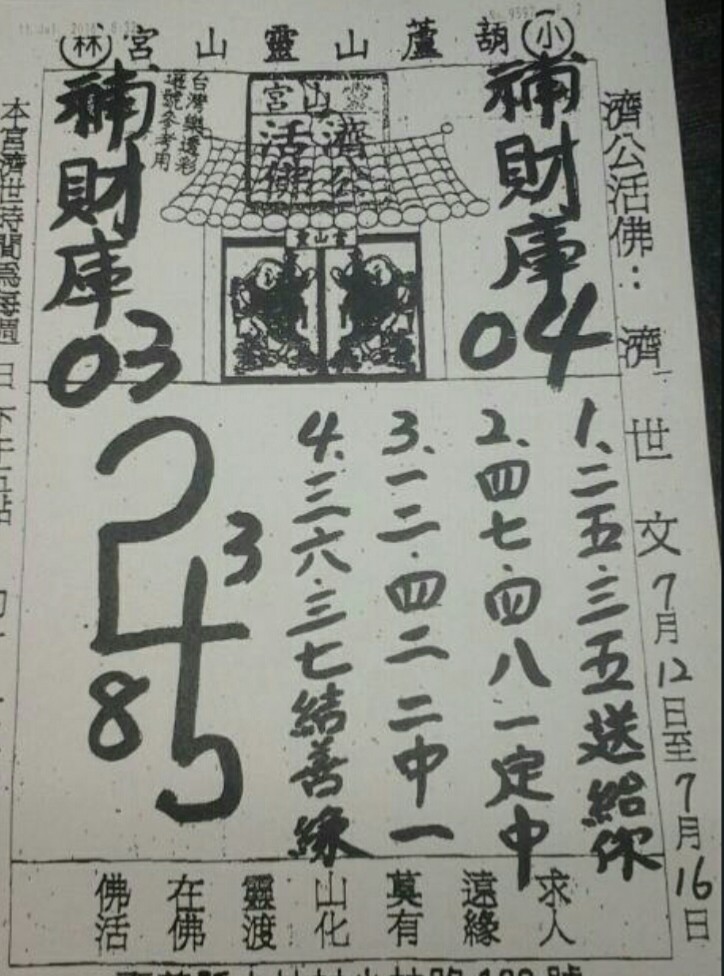 ㊣林 宮山靈山蘆葫 小
濟公活佛：濟世文7月12日至7月16日
補財庫
04
山宮
濟公
活佛
台灣樂透彩
選號參考用
靈山宮
補財庫
03
1、二五.三五送給你
2、四七.四八一定中
3、一二.四二二中一
4、三六.三七結善緣
3
8
求人
遠緣
莫有
山化
靈渡
在佛
佛活
本宮濟世時間為每週